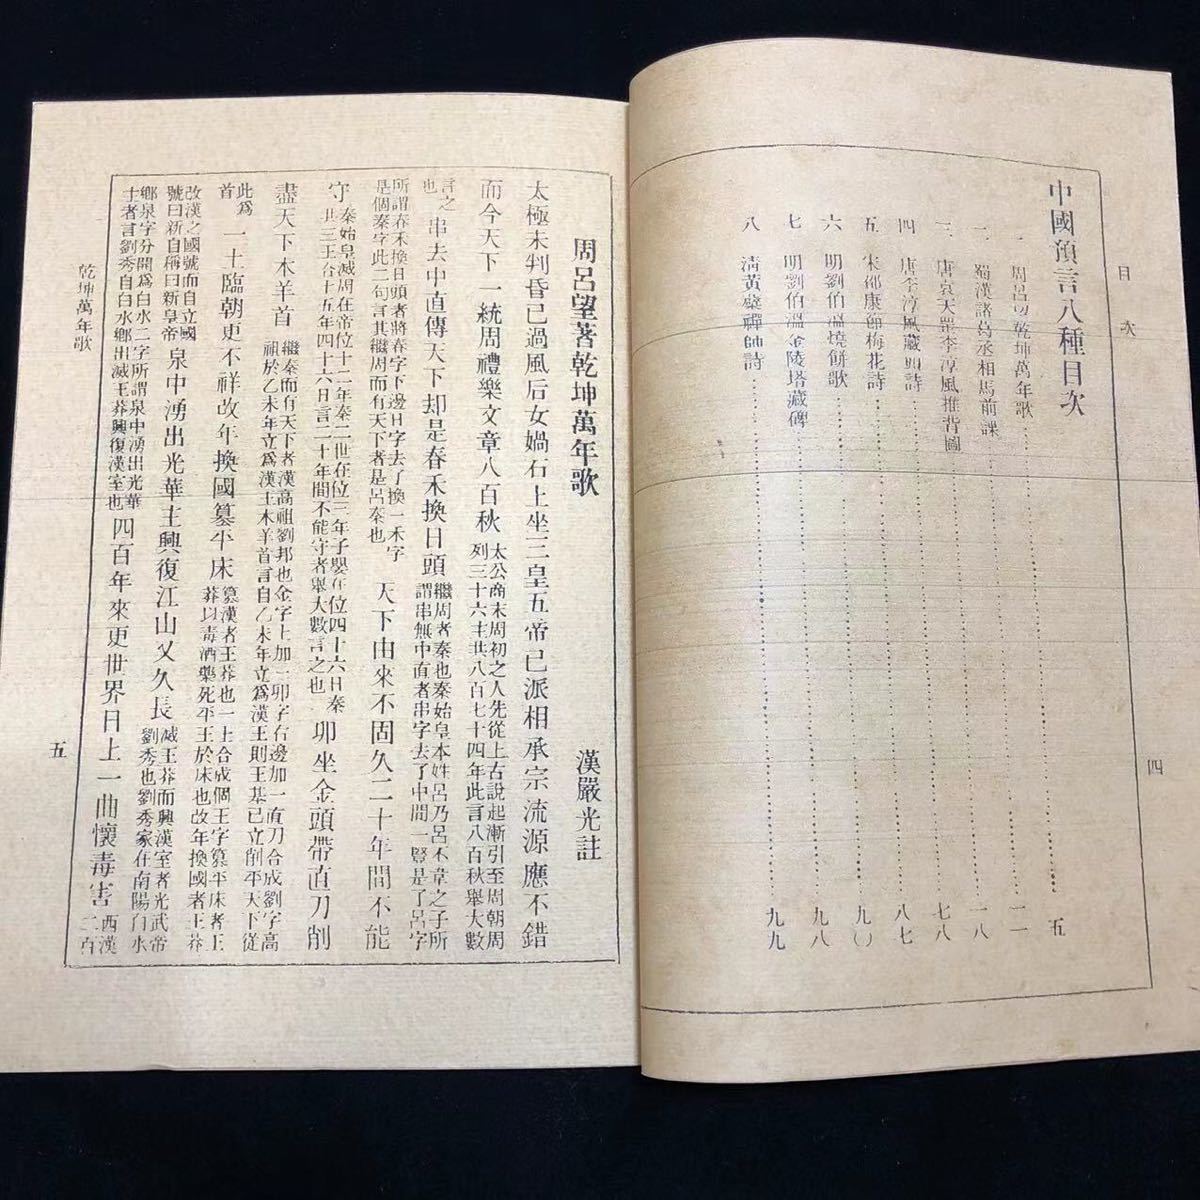 目次
四
中國預言八種目次
一 周呂望乾坤萬年歌……五
二 蜀漢諸葛丞相馬前課……一一
三 唐袁天罡李淳風推背圖……一八
四 唐李淳風藏頭詩……七八
五 宋邵康節梅花詩……八七
六 明劉伯溫燒餅歌……九〇
七 明劉伯溫金陵塔藏碑……九八
八 清黃蘗禪師詩……九九
周呂望著乾坤萬年歌 漢嚴光註
太極未判昏已過風后女媧石上坐三皇五帝已派相承宗流源應不錯
而今天下一統周禮樂文章八百秋
太公商末周初之人先從上古說起漸引至周朝周
列三十六主共八百七十四年此言八百秋舉大數
言之
也
串去中直傳天下却是春禾換日頭
繼周者秦也秦始皇本姓呂乃呂不韋之子所
謂串無中直者串字去了中間一豎是了呂字
所謂春禾換日頭者將春字下邊日字去了換一禾字
是個秦字此二句言其繼周而有天下者是呂秦也
天下由來不固久二十年間不能
守
秦始皇滅周在帝位十二年秦二世在位三年子嬰在位四十六日秦
共三王合十五年四十六日言二十年間不能守者舉大數言之也
卯坐金頭帶直刀削
盡天下木羊首
繼秦而有天下者漢高祖劉邦也金字上加一卯字右邊加一直刀合成劉字高
祖於乙未年立爲漢王木羊首言自乙未年立爲漢王則王基已立削平天下從
此爲
首
一土臨朝更不祥改年換國篡平床
篡漢者王莽也一土合成個王字篡平床者王
莽以毒酒藥死平王於床也改年換國者王莽
改漢之國號而自立國
號曰新自稱曰新皇帝
泉中湧出光華主興復江山又久長
滅王莽而興漢室者光武帝
劉秀也劉秀家在南陽白水
鄉泉字分開爲白水二字所謂泉中湧出光華
主者言劉秀自白水鄉出滅王莽興復漢室也
四百年來更世界日上一曲懷毒害
西漢
二百
乾坤萬年歌
五